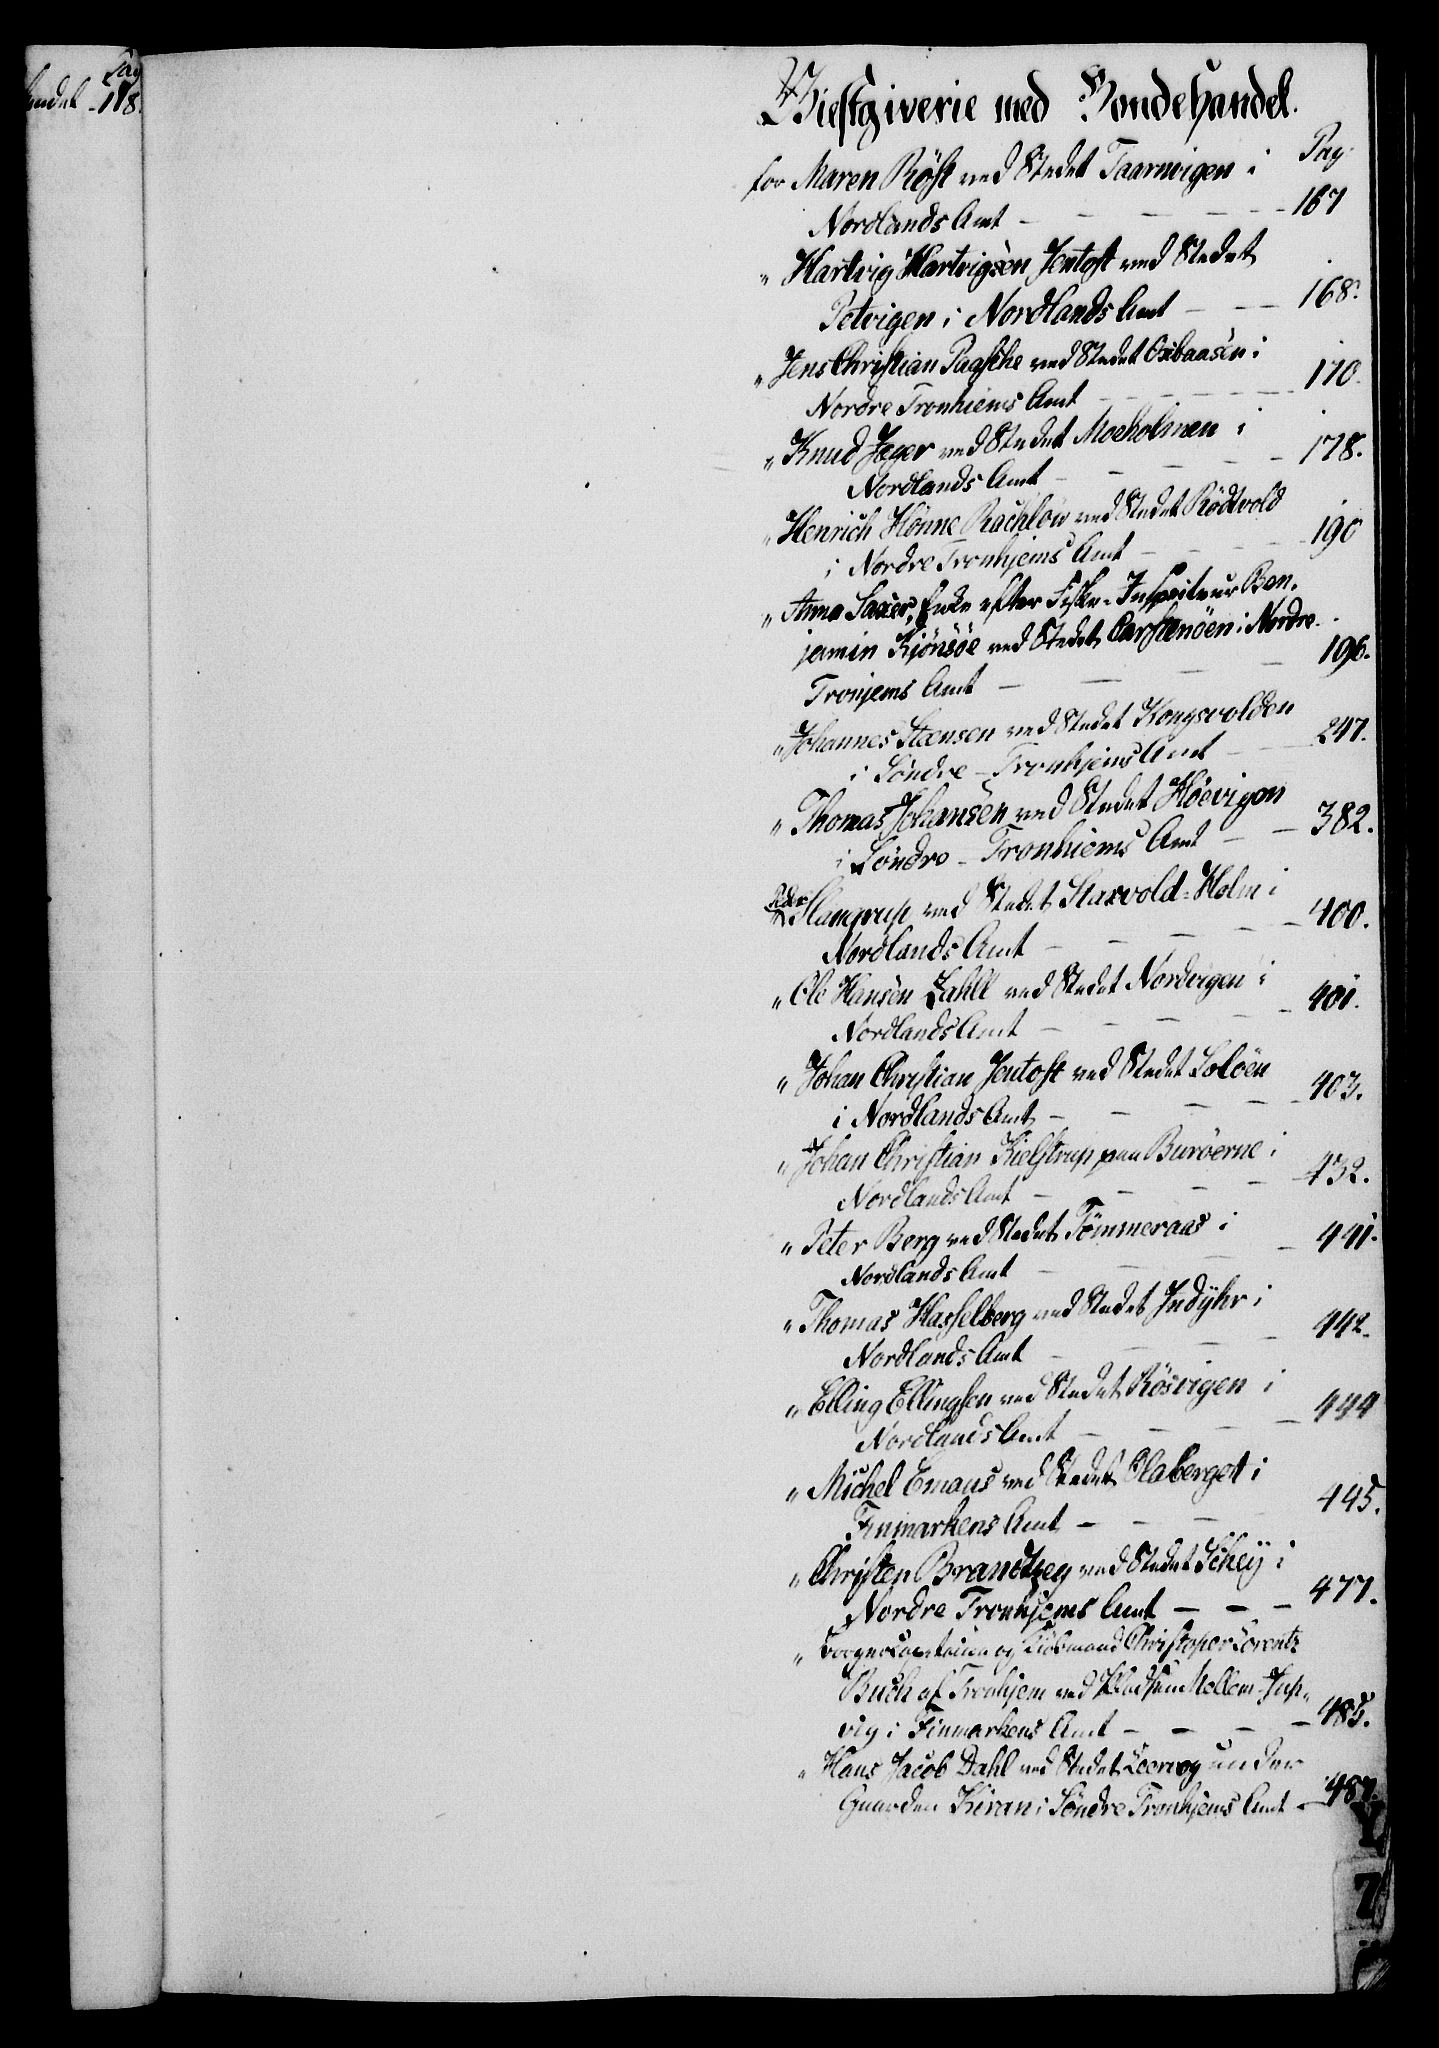 Pag
118.
Giestgiverie med Bondehandel.
Pag.
for Maren Röst ved Stedet Taarnvigen i
Nordlands Amt - - - - - 167
" Hartvig Hartvigsen Jentoft ved Stedet
Petvigen i Nordlands Amt - - - 168.
" Jens Christian Paasche ved Stedet Oxbaasen i
Nordre Tronhiems Amt - - - - 170.
" Knud Jæger ved Stedet Moeholmen i
Nordlands Amt - - - - - 178.
" Henrich Hönne Rachlow ved Stedet Rödtvold
i Nordre Tronhjems Amt - - - - 190
" Anna Saxer, Enke efter Fiske-Inspecteur Ben-
jamin Kjönsöe ved Stedet Carstenöen i Nordre
Tronjems Amt - - - - 196.
" Johannes Steensen ved Stedet Kongsvolden
i Söndre-Tronhjems Amt - - 247.
" Thomas Johansen ved Stedet Höevigen
i Söndre-Tronhiems Amt - - 382.
Slamrup ved Stedet Starvold-Holm i
Nordlands Amt - - - - - 400.
" Ole Hansen Zahll ved Stedet Nordvigen i
Nordlands Amt - - - - - 401.
" Johan Christian Jentoft ved Stedet Solöen
i Nordlands Amt - - - - - 403.
" Johan Christian Kielstrup paa Buröerne i
Nordlands Amt - - - - 432.
" Peter Berg ved Stedet Tömmeraas i
Nordlands Amt - - - - 441.
" Thomas Hasselberg ved Stedet Indÿhr i
Nordlands Amt - - - - 442.
" Elling Ellingsen ved Stedet Rösvigen i
Nordlands Amt - - - - 444
" Michel Emaus ved Stedet Olaberget i
Finmarkens Amt - - - - 445.
" Christen Brandtzeg ved Stedet Schey i
Nordre Tronhjems Amt - - - 477.
" og Kiöbmand Christopher Lorentz
Buch af Tronhjem ved Mellem-Jup-
vig i Finmarkens Amt - - - - 485.
" Hans Jacob Dahl ved Stedet Leervog under
Gaarden Kiran i Söndre Tronhjems Amt - 487.
Y
Z